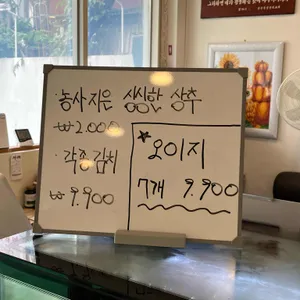 농사 지은 싱싱한 상추
₩2.000
각종김치
₩9.900
★오이지
7개 9.900